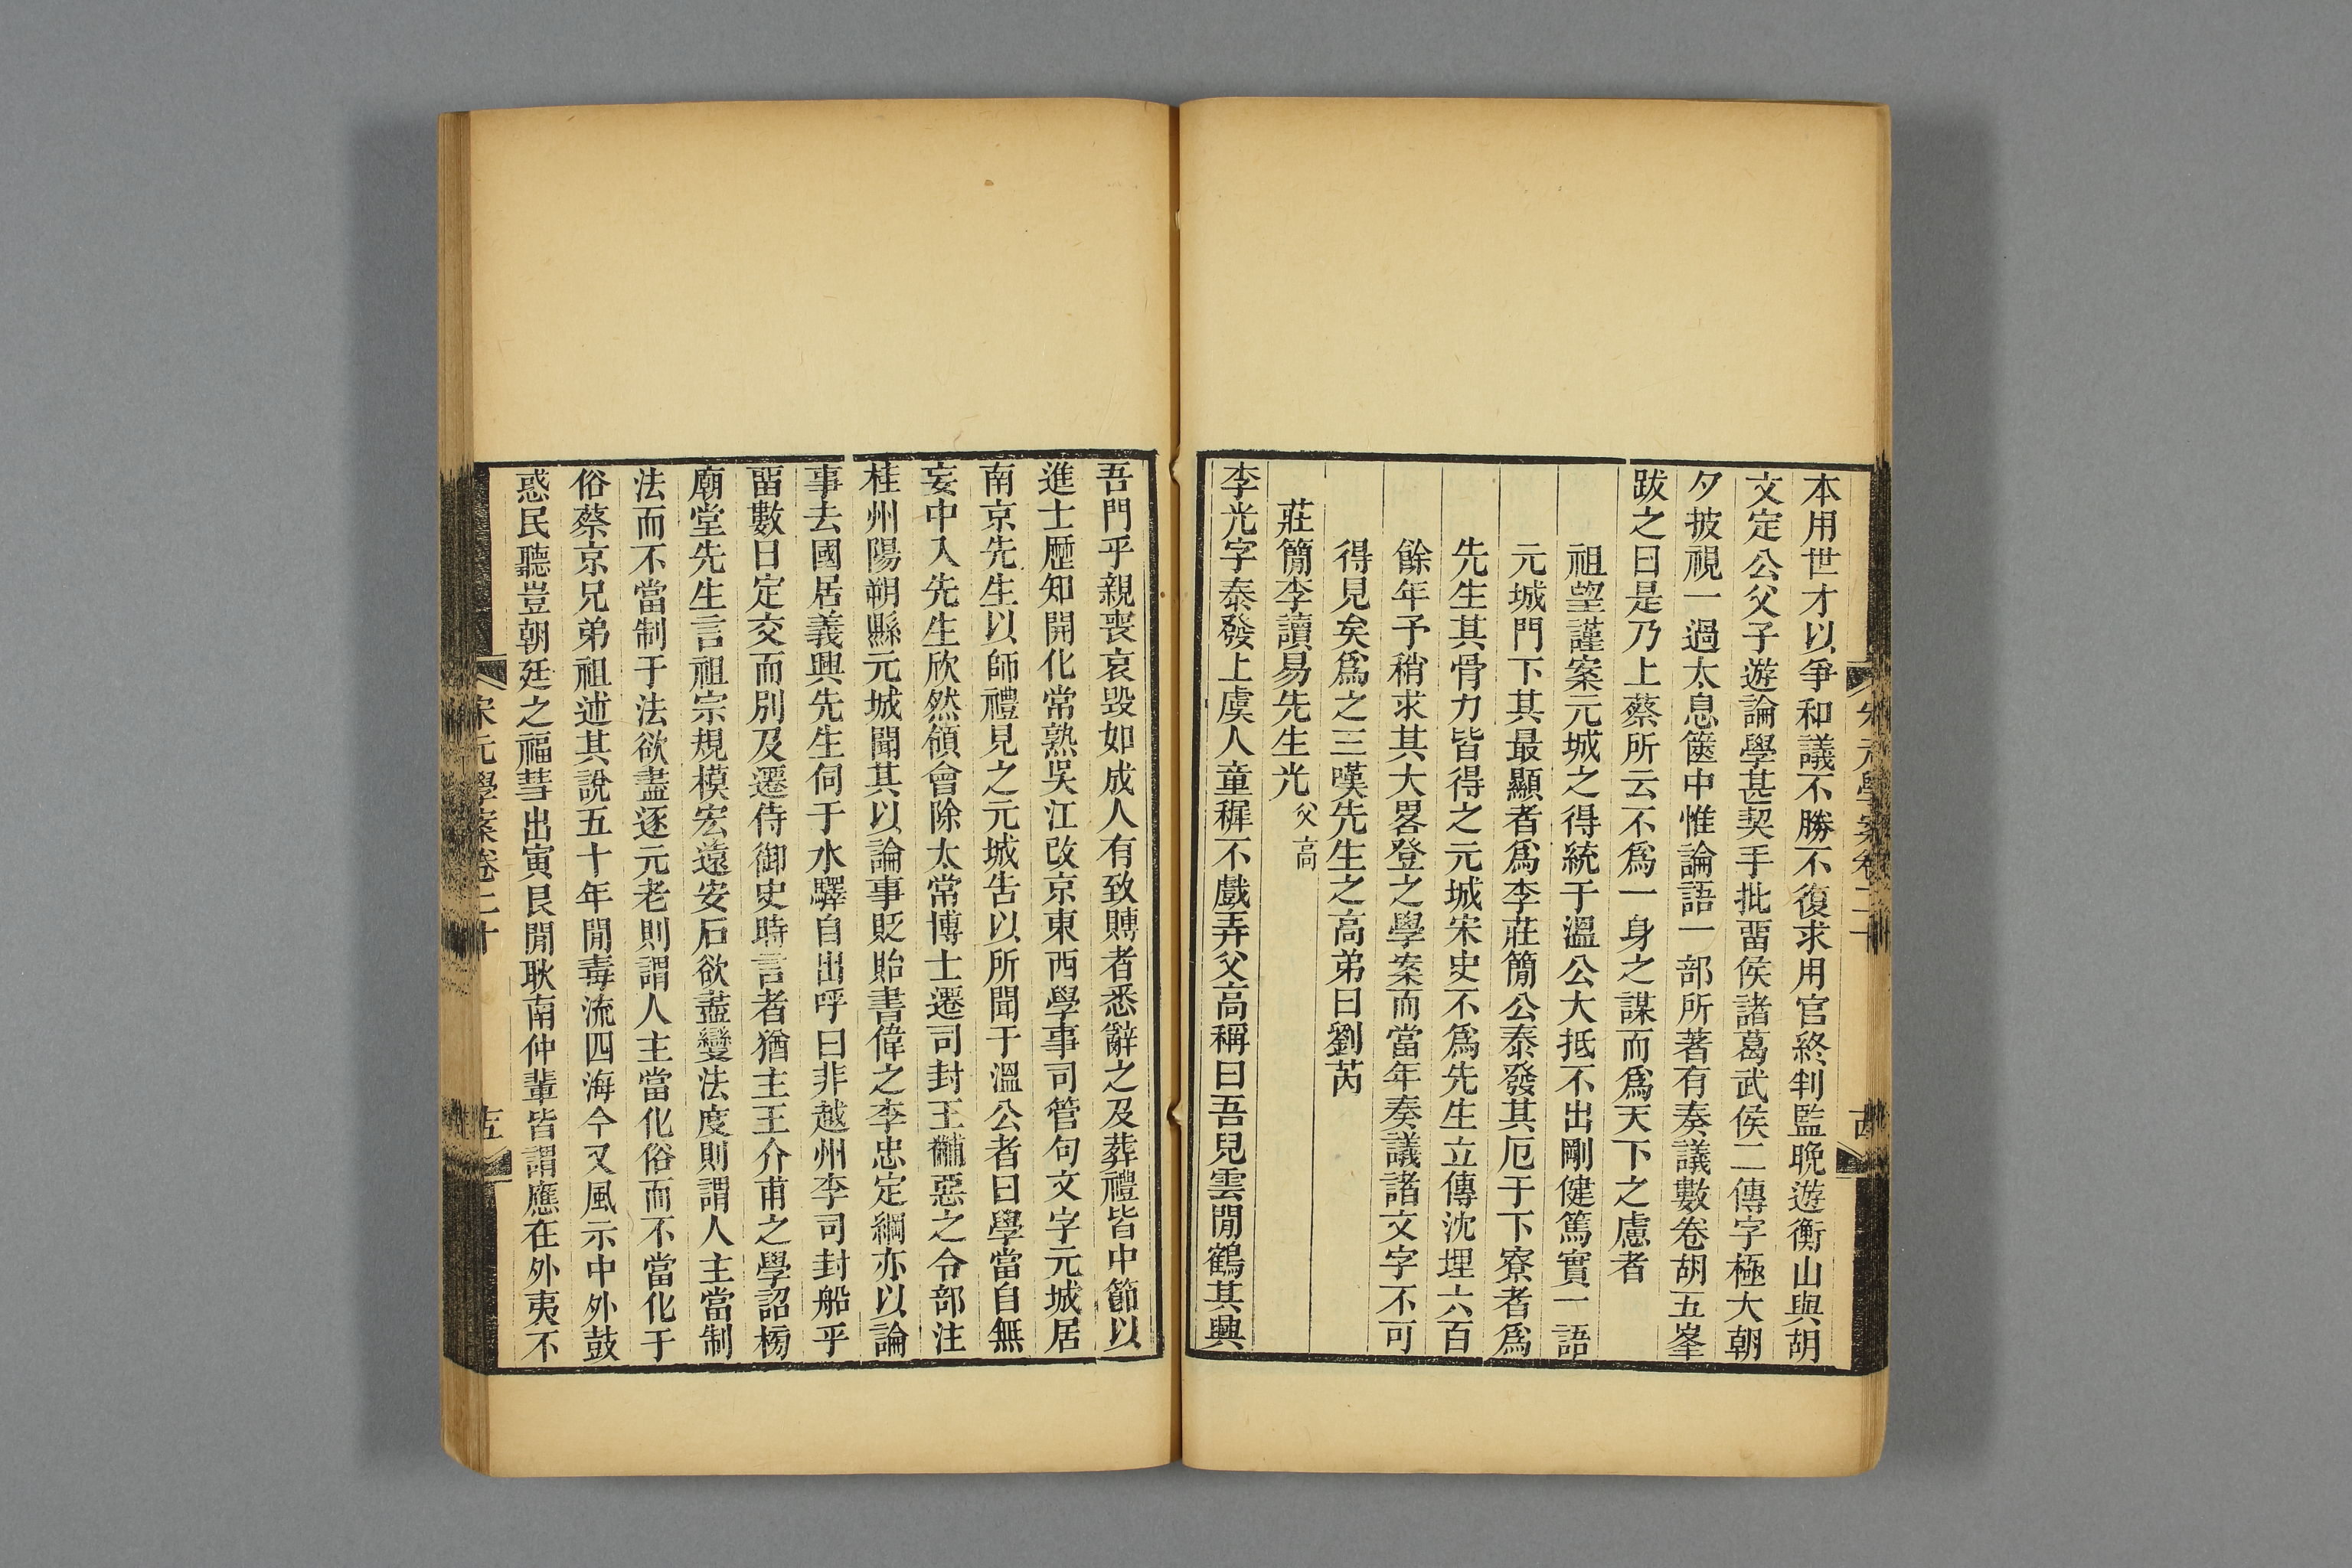 宋元學案卷二十
本用世才以爭和議不勝不復求用官終判監晚遊衡山與胡
文定公父子遊論學甚契手批畱侯諸葛武侯二傳字極大朝
夕披視一過太息篋中惟論語一部所著有奏議數卷胡五峯
跋之曰是乃上蔡所云不爲一身之謀而爲天下之慮者
祖望謹案元城之得統于溫公大抵不出剛健篤實一語
元城門下其最顯者爲李莊簡公泰發其厄于下寮者爲
先生其骨力皆得之元城宋史不爲先生立傳沈埋六百
餘年予稍求其大畧登之學案而當年奏議諸文字不可
得見矣爲之三嘆先生之高弟曰劉芮
莊簡李讀易先生光父高
李光字泰發上虞人童穉不戲弄父高稱曰吾兒雲閒鶴其興
吾門乎親喪哀毀如成人有致賻者悉辭之及葬禮皆中節以
進士歷知開化常熟吳江改京東西學事司管句文字元城居
南京先生以師禮見之元城告以所聞于溫公者曰學當自無
妄中入先生欣然領會除太常博士遷司封王黼惡之令部注
桂州陽朔縣元城聞其以論事貶貽書偉之李忠定綱亦以論
事去國居義興先生伺于水驛自出呼曰非越州李司封船乎
畱數日定交而別及遷侍御史時言者猶主王介甫之學詔榜
廟堂先生言祖宗規模宏遠安石欲盡變法度則謂人主當制
法而不當制于法欲盡逐元老則謂人主當化俗而不當化于
俗蔡京兄弟祖述其說五十年閒毒流四海今又風示中外鼓
惑民聽豈朝廷之福彗出寅艮閒耿南仲輩皆謂應在外夷不
宋元學案卷二十
五